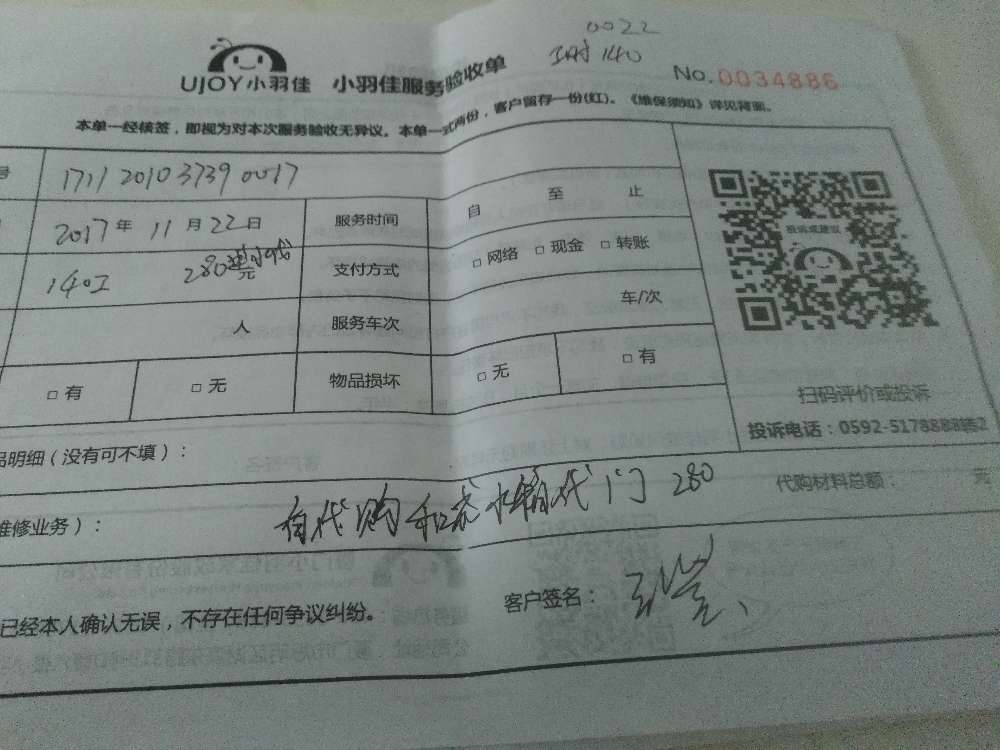 0022
工时140
UJOY小羽佳 小羽佳服务验收单 No.0034886
本单一经核签，即视为对本次服务验收无异议。本单一式两份，客户留存一份(红)。《维保须知》详见背面。
号 1711 20103739 0017
2017年 11月22日 服务时间 自 至 止
140工 280 元 支付方式 □网络 □现金 □转账
人 服务车次 车/次
□有 □无 物品损坏 □无 □有
投诉或建议
扫码评价或投诉
投诉电话：0592-5178888转2
品明细（没有可不填）：
代购材料总额： 元
维修业务）： 有代购 水箱 门 280
已经本人确认无误，不存在任何争议纠纷。 客户签名：